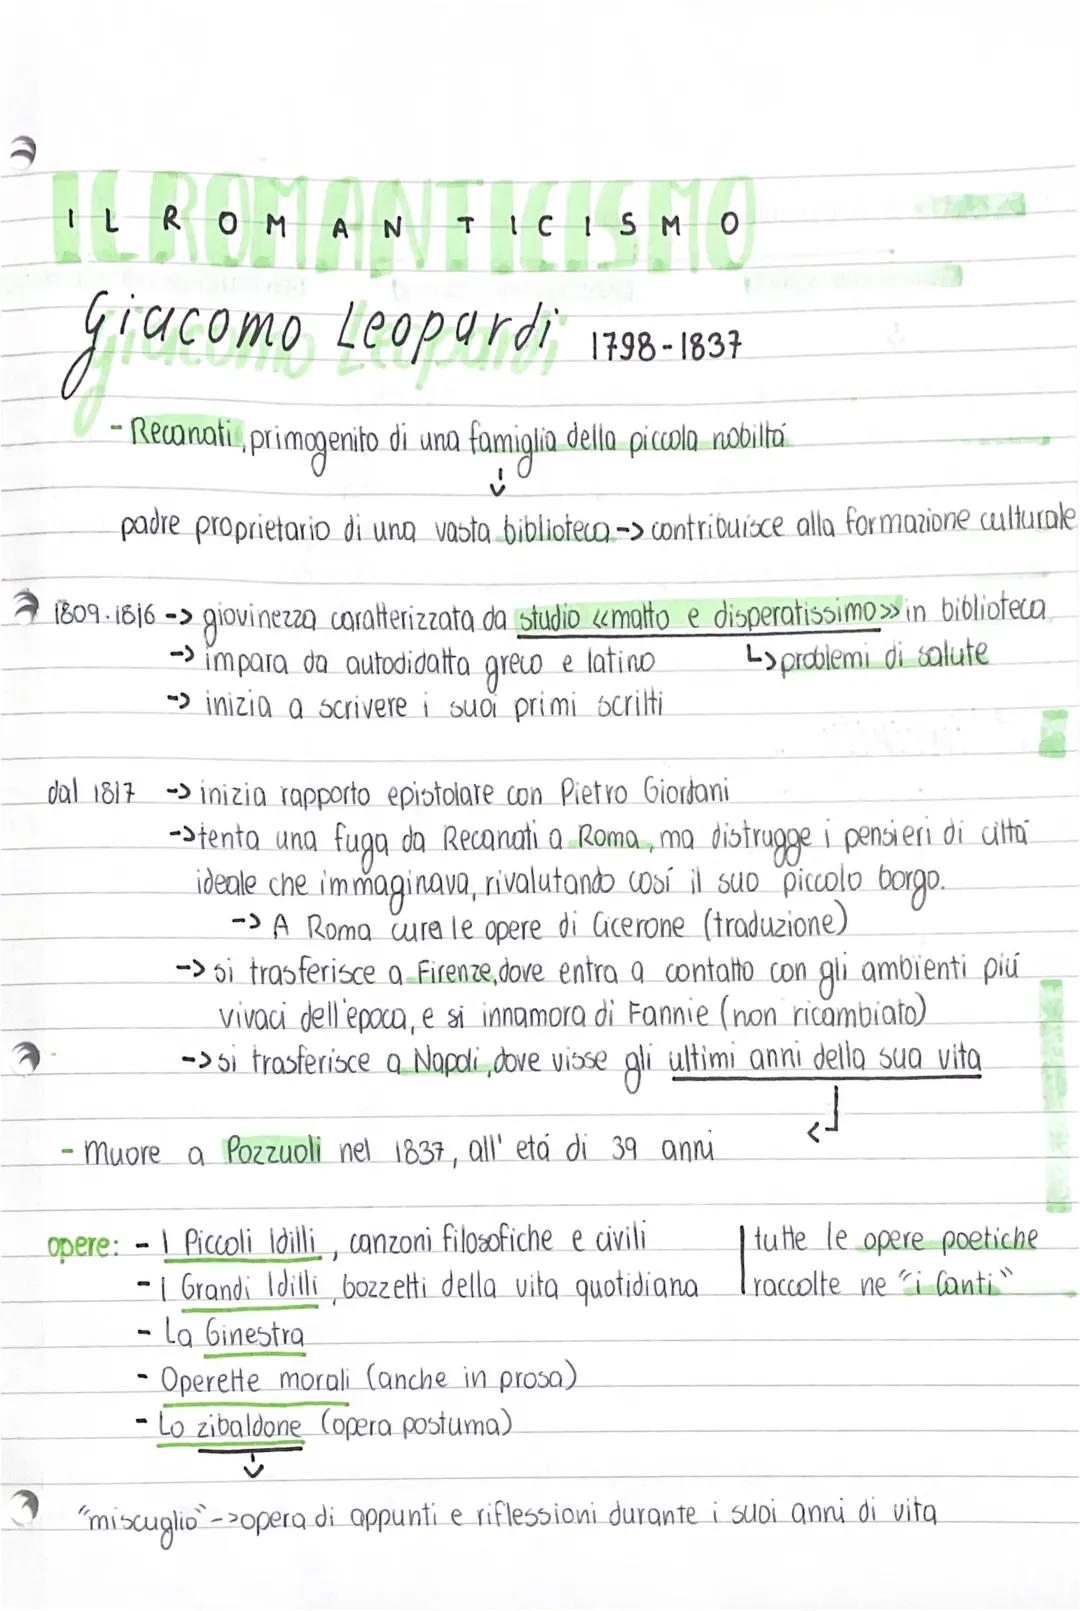 IL ROMANTICISMO
Giacomo Leopardi 1798-1837
- Recanati, primogenito di una famiglia della piccola nobiltá
padre proprietario di una vasta biblioteca -> contribuisce alla formazione culturale
1809-1816 -> giovinezza caratterizzata da studio <<matto e disperatissimo>> in biblioteca
-> impara da autodidatta greco e latino ↳ problemi di salute
-> inizia a scrivere i suoi primi scritti
dal 1817 -> inizia rapporto epistolare con Pietro Giordani
-> tenta una fuga da Recanati a Roma, ma distrugge i pensieri di cittá
ideale che immaginava, rivalutando cosí il suo piccolo borgo.
-> A Roma cura le opere di Cicerone (traduzione)
-> si trasferisce a Firenze, dove entra a contatto con gli ambienti piú
vivaci dell'epoca, e si innamora di Fannie (non ricambiato)
-> si trasferisce a Napoli, dove visse gli ultimi anni della sua vita
- Muore a Pozzuoli nel 1837, all'etá di 39 anni
opere: - I Piccoli Idilli, canzoni filosofiche e civili | tutte le opere poetiche
- I Grandi Idilli, bozzetti della vita quotidiana | raccolte ne "i Canti"
- La Ginestra
- Operette morali (anche in prosa)
- Lo zibaldone (opera postuma)
"miscuglio" -> opera di appunti e riflessioni durante i suoi anni di vita